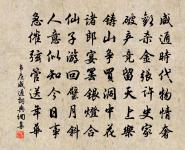 咸通時代物情奢
歡殺金張許史家
破產競留天上樂
鑄山爭買洞中花
諸郎宴罷銀燈合
仙子游回璧月斜
人意似知今日事
急催弦管送年華
韋莊咸通詞典網